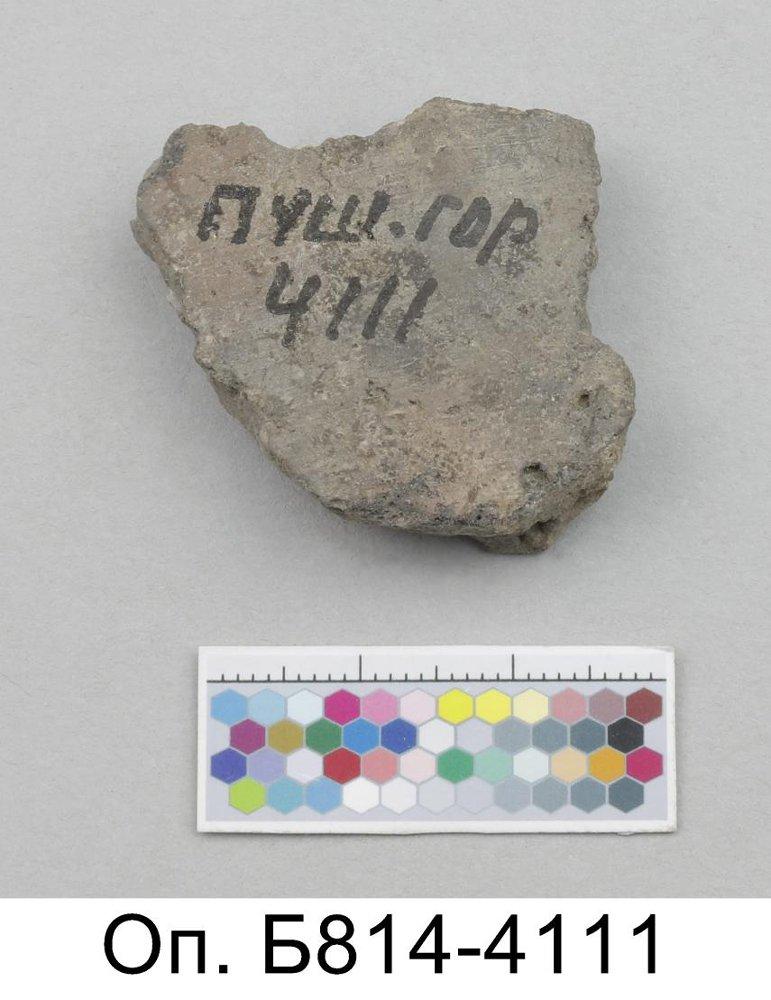 ПУШ.ГОР
4111
Оп. Б814-4111